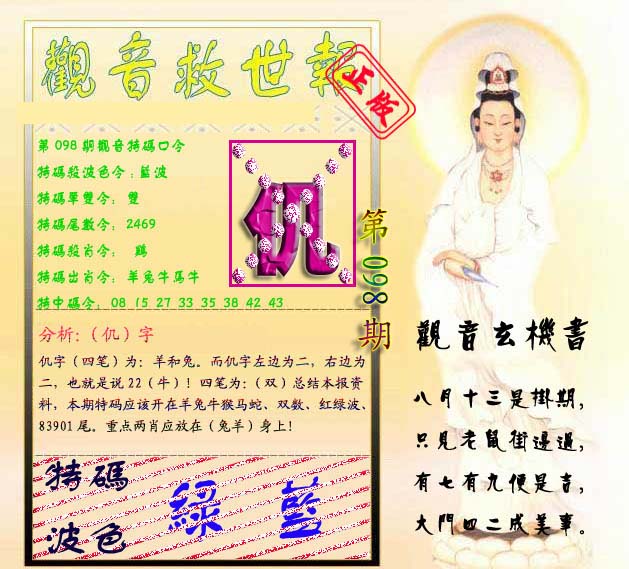 觀音救世報
正版
第098期觀音特碼口令
特碼殺波色令:藍波
特碼單雙令: 雙
特碼尾數令: 2469
特碼殺肖令: 鷄
特碼出肖令: 羊兔牛馬牛
特中碼令: 08 15 27 33 35 38 42 43
仉
第098期
分析:（仉）字
仉字（四笔）为：羊和兔。而仉字左边为二，右边为
二，也就是说22（牛）！四笔为：（双）总结本报资
料，本期特码应该开在羊兔牛猴马蛇、双数、红绿波、
83901尾。重点两肖应放在（兔羊）身上！
特碼
波色
綠 藍
觀音玄機書
八月十三是掛期，
只見老鼠街邊過，
有七有九便是吉，
大門四二成美事。